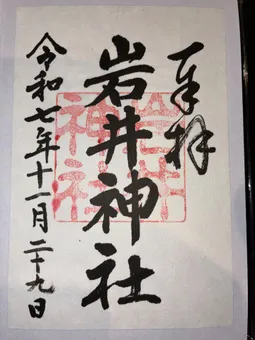 奉拝
岩井神社
令和七年十一月二十九日